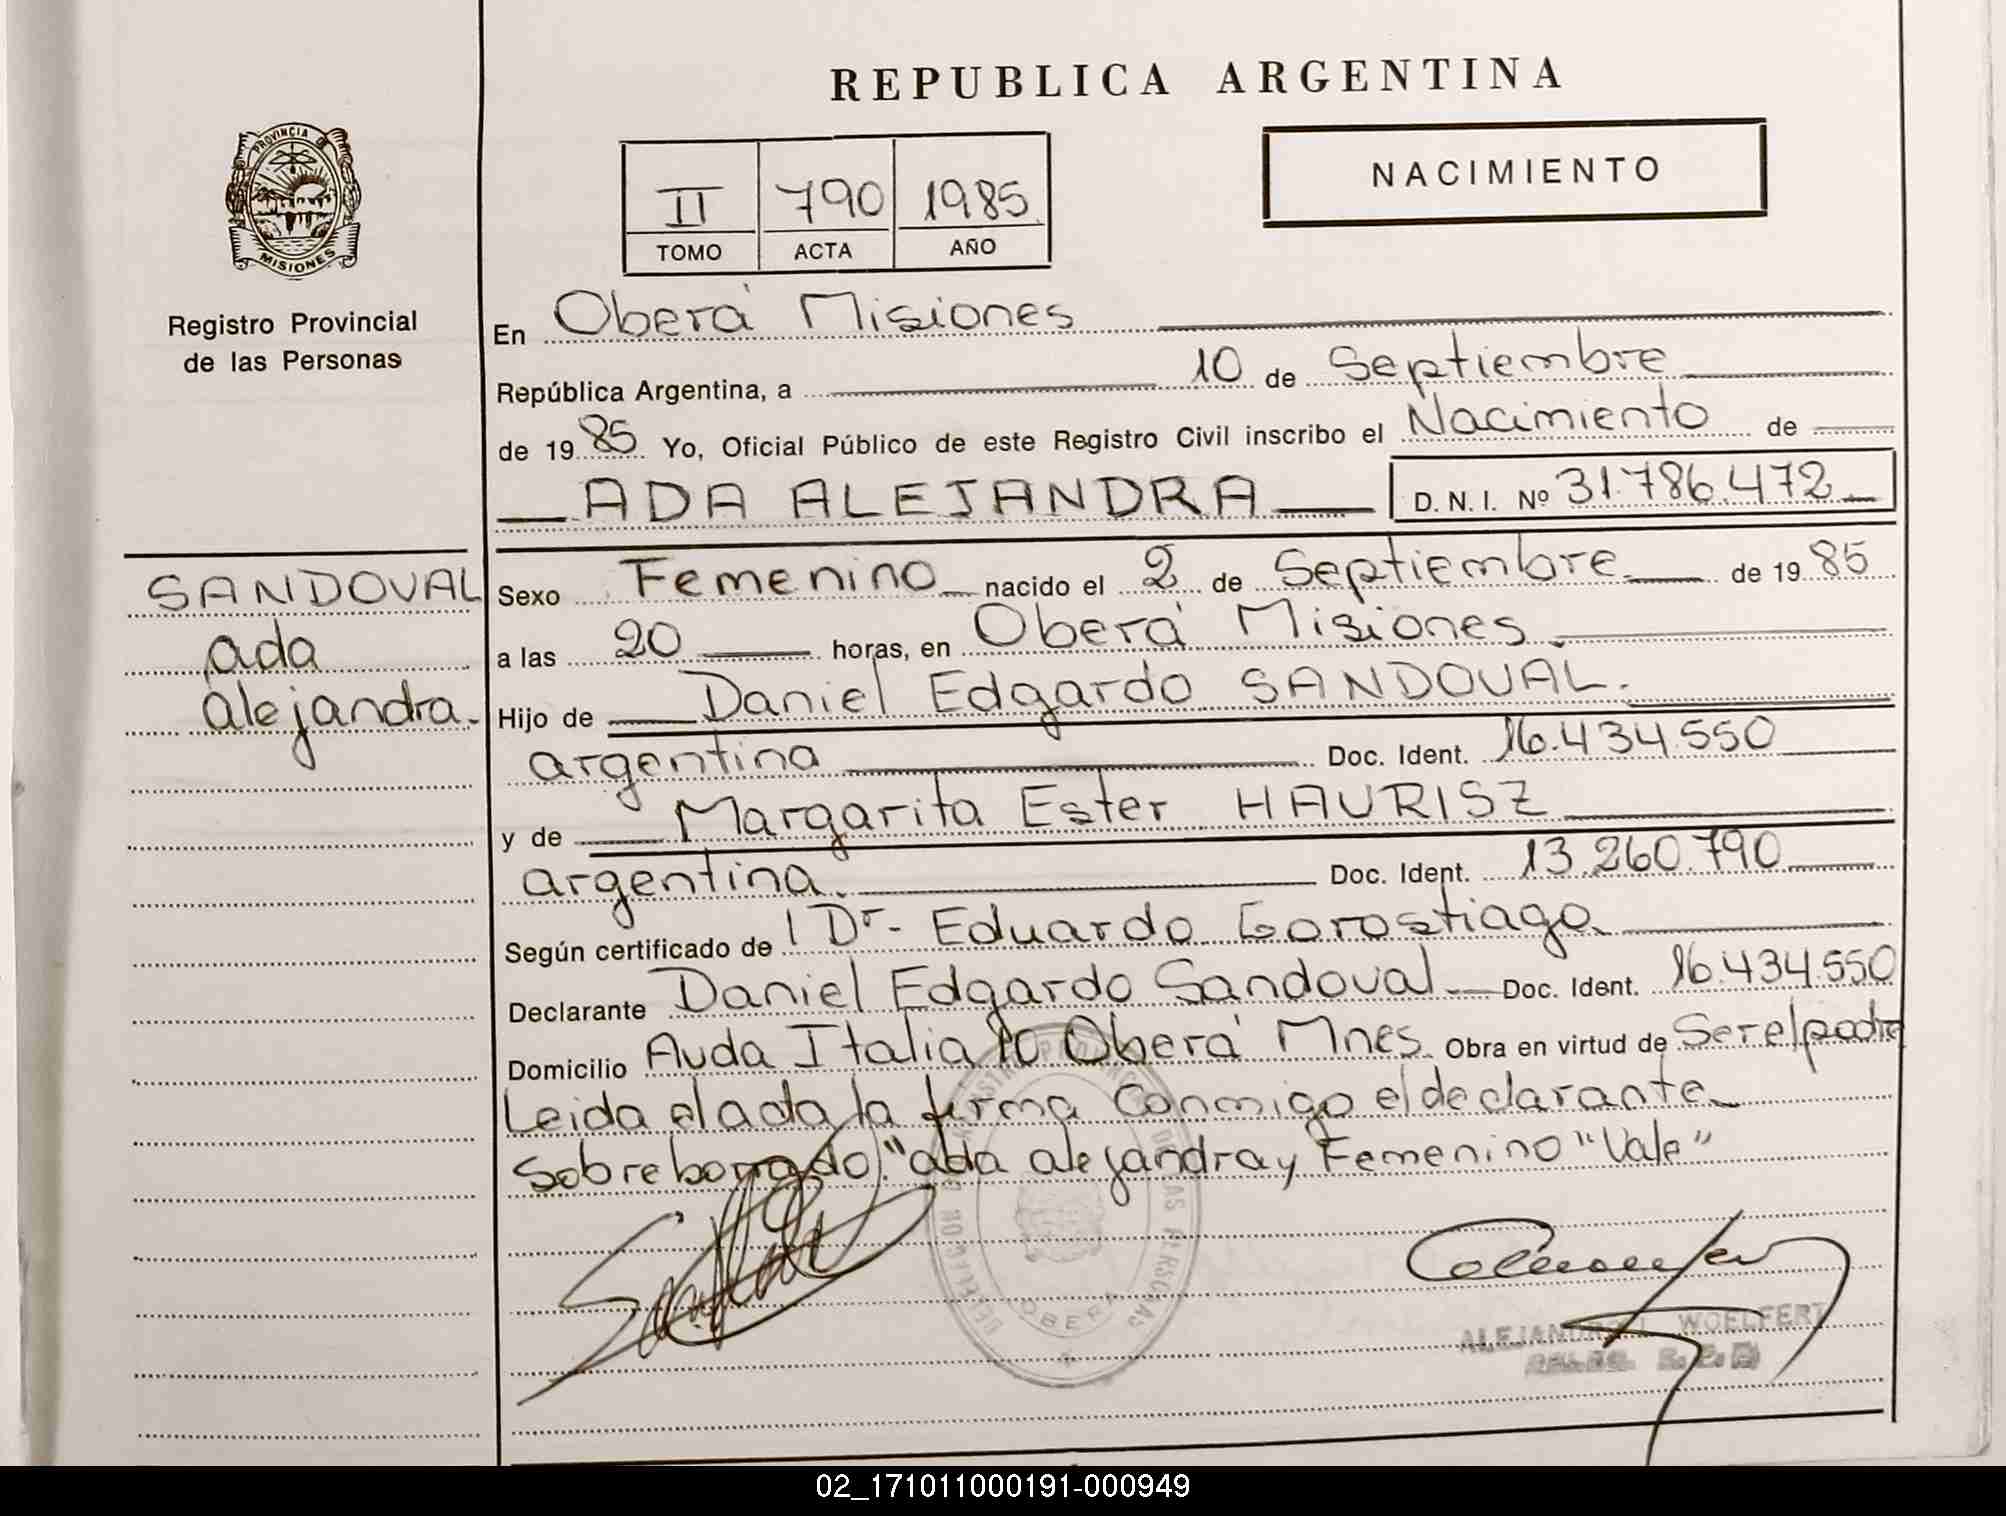 REPUBLICA ARGENTINA
PROVINCIA DE
MISIONES
Registro Provincial
de las Personas
II 790 1985
TOMO ACTA AÑO
NACIMIENTO
En Oberá Misiones
República Argentina, a 10 de Septiembre
de 1985 Yo, Oficial Público de este Registro Civil inscribo el Nacimiento de
ADA ALEJANDRA D. N. I. Nº 31.786.472
SANDOVAL
ada
alejandra.
Sexo Femenino nacido el 2 de Septiembre de 1985
a las 20 horas, en Oberá Misiones
Hijo de Daniel Edgardo SANDOVAL.
argentina Doc. Ident. 16.434.550
y de Margarita Ester HAURISZ
argentina. Doc. Ident. 13.260.790
Según certificado de Dr. Eduardo Gorostiago
Declarante Daniel Edgardo Sandoval Doc. Ident. 16.434.550
Domicilio Avda Italia 10 Oberá Mnes. Obra en virtud de Ser el padre
Leida el acta la firma conmigo el declarante
Sobreborrado: "ada alejandra y Femenino "Vale"
DE LAS PERSONAS
OBERA
WOELFERT
02_171011000191-000949